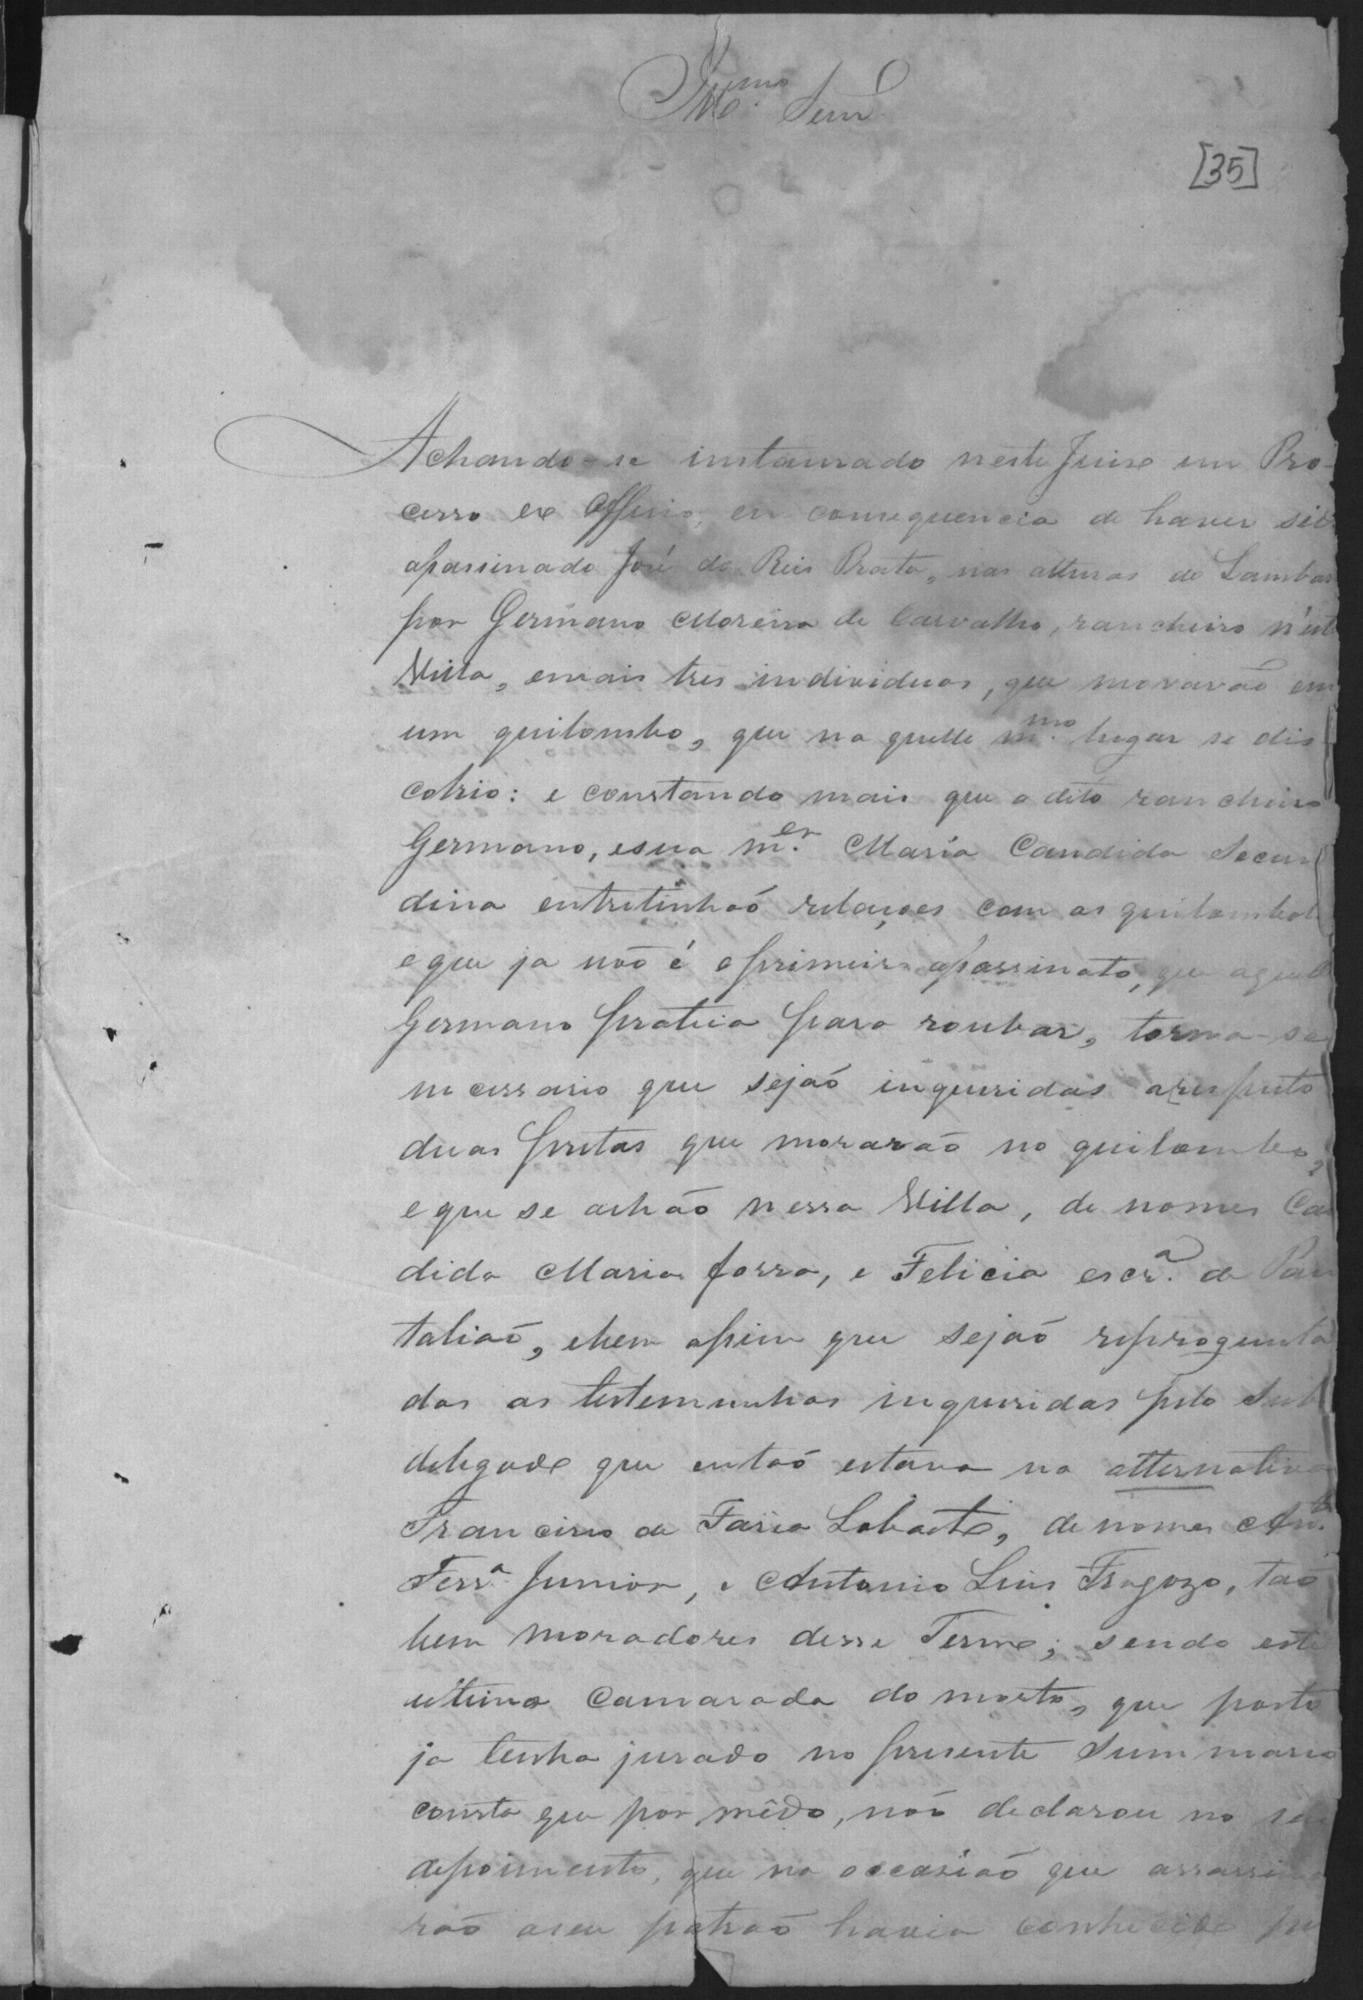 Ill.mo Senr.
[35]
Achando-se instaurado neste Juizo um Pro-
cesso ex Officio, em consequencia de haver sid
assassinado José do Reis Prata, nas alturas do Lambar
por Germano Moreira de Carvalho, rancheiro n'est
Villa, emais tres individuos, que moravão em
um quilombo, que na quelle m.mo lugar se dis
cobrio: e constando mais que o dito rancheiro
Germano, esua m.er Maria Candida Secun
dina entretinhaõ relações com os quilombol
e que ja não é o primeiro assassinato, que aquel
Germano pratica para roubar, torna-se
necessario que sejaõ inqueridas arespeito
duas pretas que morarão no quilombo,
e que se achão nessa Villa, de nomes Can
dida Maria forra, e Felicia escr.a de Pan
taliaõ, ebem assim que sejaõ reprogunta
das as testemunhas inqueridas pelo Sub
delegado que entaõ estava na alternativa
Francisco de Faria Lobato, de nomes Anto.
Ferr.a Junior, e Antonio Luis Fragozo, taõ
bem moradores desse Termo; sendo este
ultimo camarada do morto, que posto
ja tenha jurado no presente Summario
consta que por mêdo, não declarou no seu
depoimento, que na occasiaõ que assassina
raõ aseu patraõ havia conhecido pe